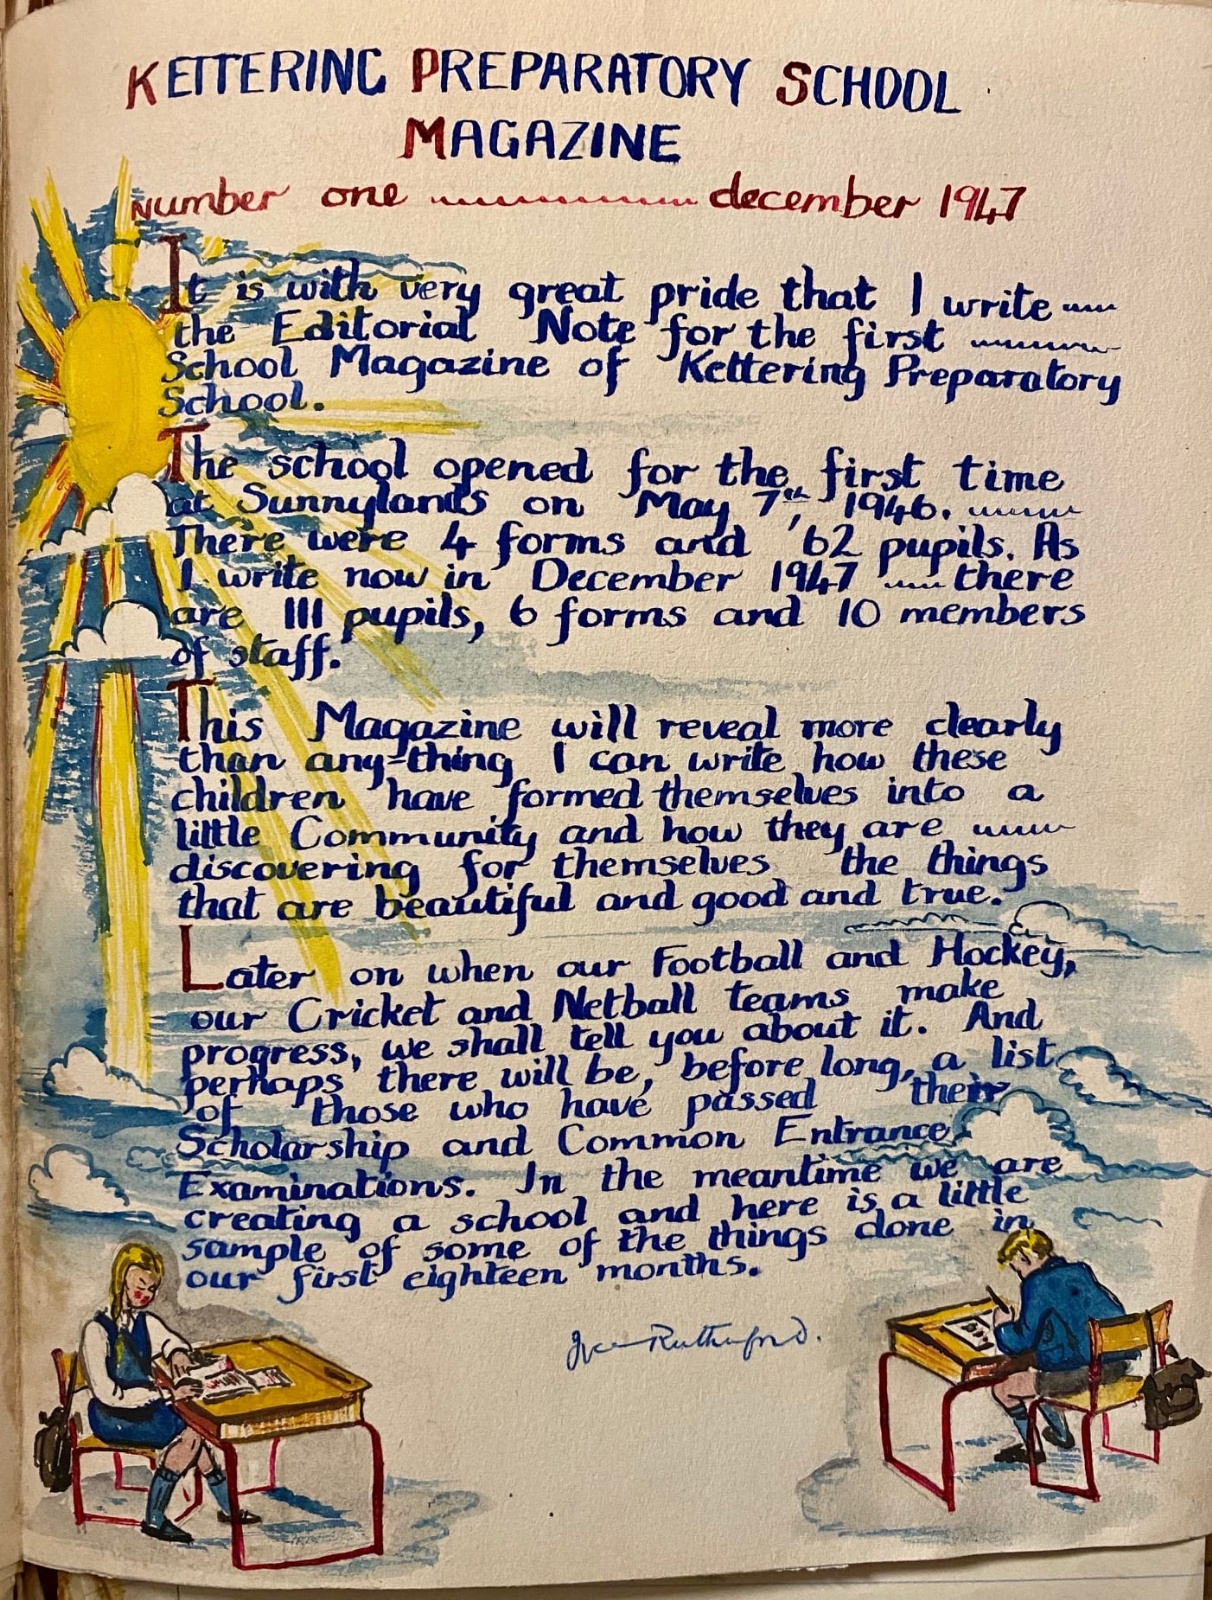 KETTERING PREPARATORY SCHOOL
MAGAZINE
Number one december 1947
It is with very great pride that I write
the Editorial Note for the first
School Magazine of Kettering Preparatory
School.
The school opened for the first time
at Sunnylands on May 7th, 1946.
There were 4 forms and 62 pupils. As
I write now in December 1947 there
are 111 pupils, 6 forms and 10 members
of staff.
This Magazine will reveal more clearly
than any-thing I can write how these
children have formed themselves into a
little Community and how they are
discovering for themselves the things
that are beautiful and good and true.
Later on when our Football and Hockey,
our Cricket and Netball teams make
progress, we shall tell you about it. And
perhaps there will be, before long, a list
of those who have passed their
Scholarship and Common Entrance
Examinations. In the meantime we are
creating a school and here is a little
sample of some of the things done in
our first eighteen months.
Rutherford.